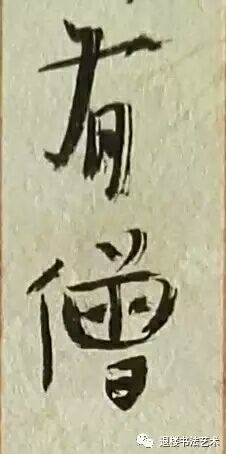 有僧
退楼书法艺术